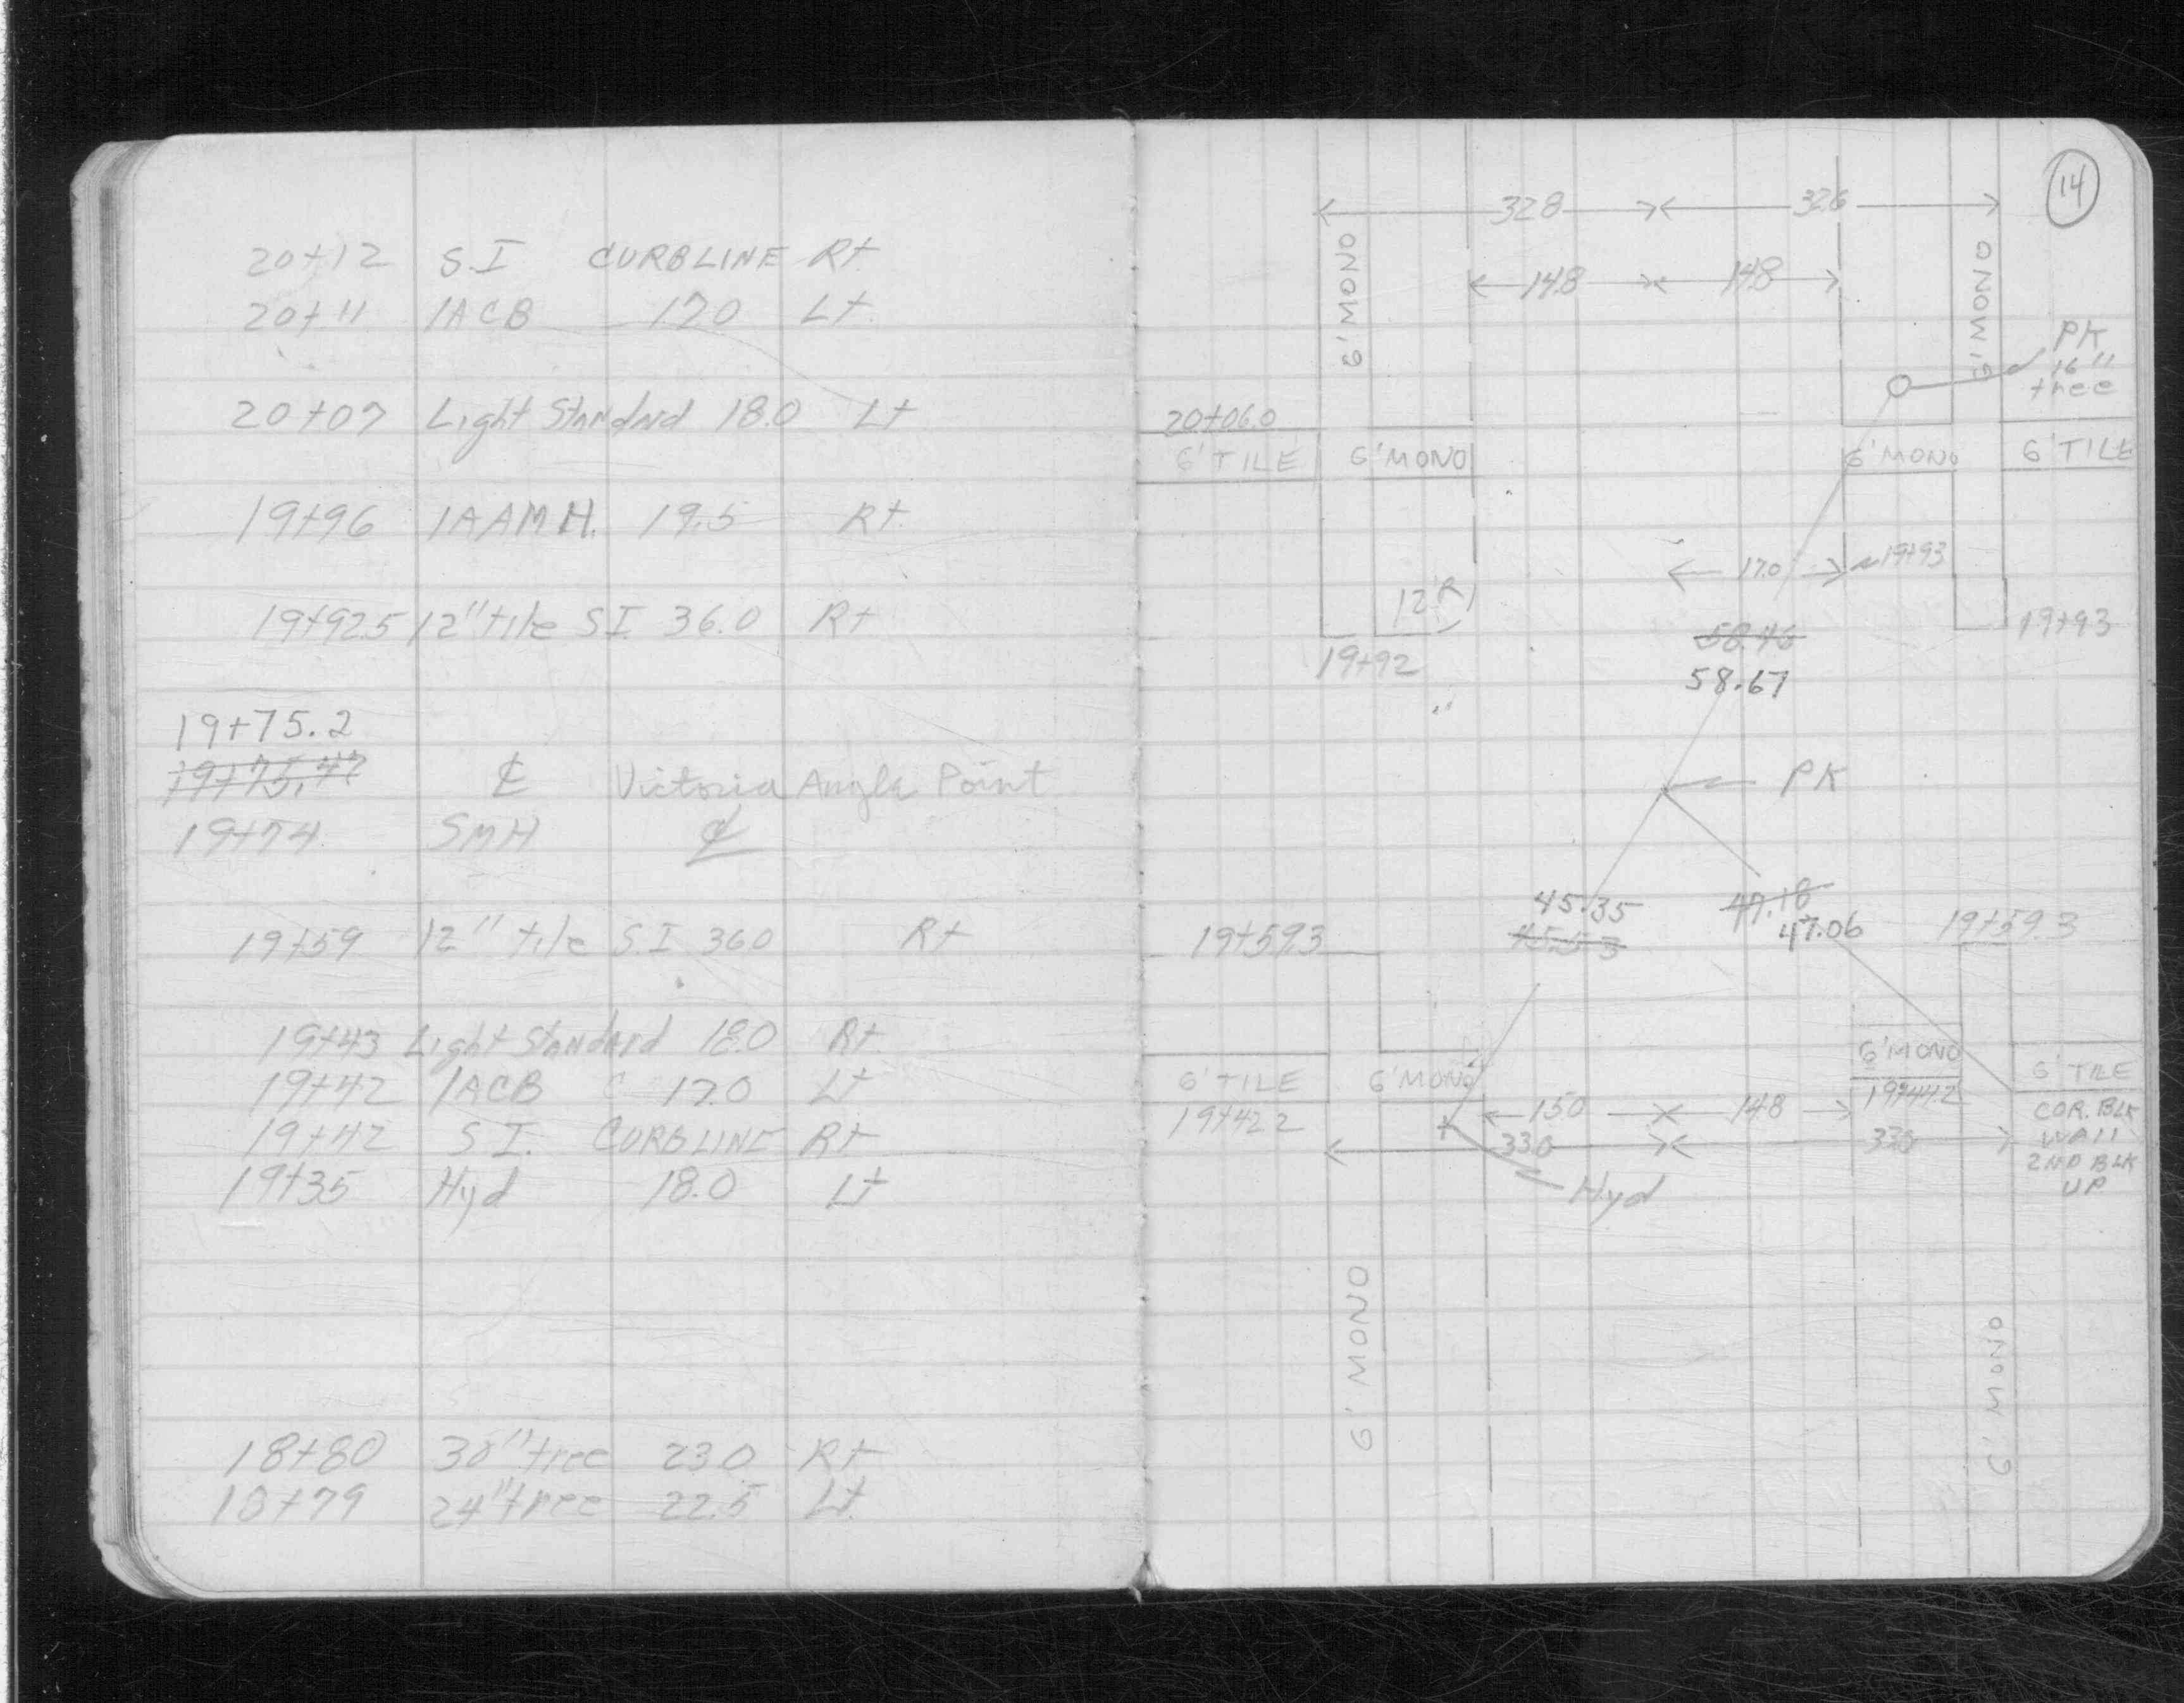 20+12 S.I CURBLINE Rt
20+11 1ACB 17.0 Lt
20+07 Light Standard 18.0 Lt
19+96 1AAMH. 19.5 Rt
19+92.5 12" tile S I 36.0 Rt
19+75.2
19+75.47 ℄ Victoria Angle Point
19+74 SMH ℄
19+59 12" tile S.I 36.0 Rt
19+43 Light Standard 18.0 Rt
19+42 1ACB 17.0 Lt
19+42 S.I. CURBLINE Rt
19+35 Hyd 18.0 Lt
18+80 30" tree 23.0 Rt
18+79 24" tree 22.5 Lt
14
32.8 32.6
6' MONO 6' MONO
14.8 14.8
PK
16"
tree
20+06.0
6' TILE 6' MONO 6' MONO 6' TILE
17.0 19+93
12' R
19+92 19+93
58.46
58.67
PK
45.35 47.18
19+59.3 45.53 47.06 19+59.3
6' MONO
6' TILE 6' MONO 6' TILE
19+42.2 15.0 14.8 19+44.2 COR. BLK
33.0 33.0 WALL
2ND BLK
UP
Hyd
6' MONO 6' MONO